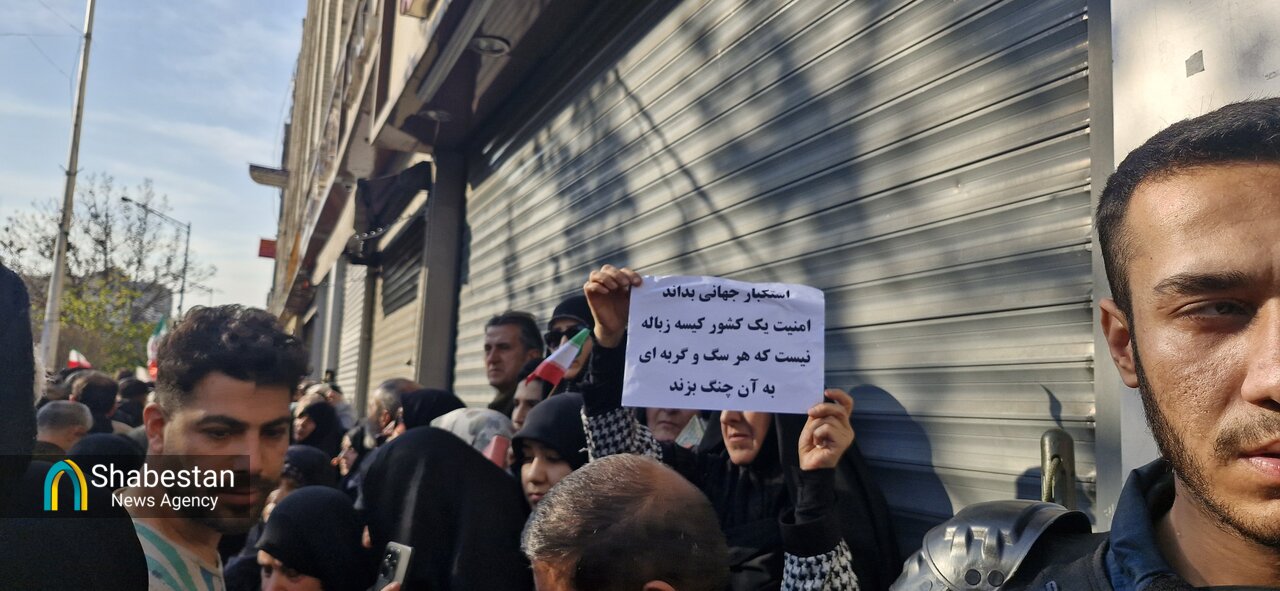 استکبار جهانی بداند
امنیت یک کشور کیسه زباله
نیست که هر سگ و گربه ای
به آن چنگ بزند
Shabestan
News Agency